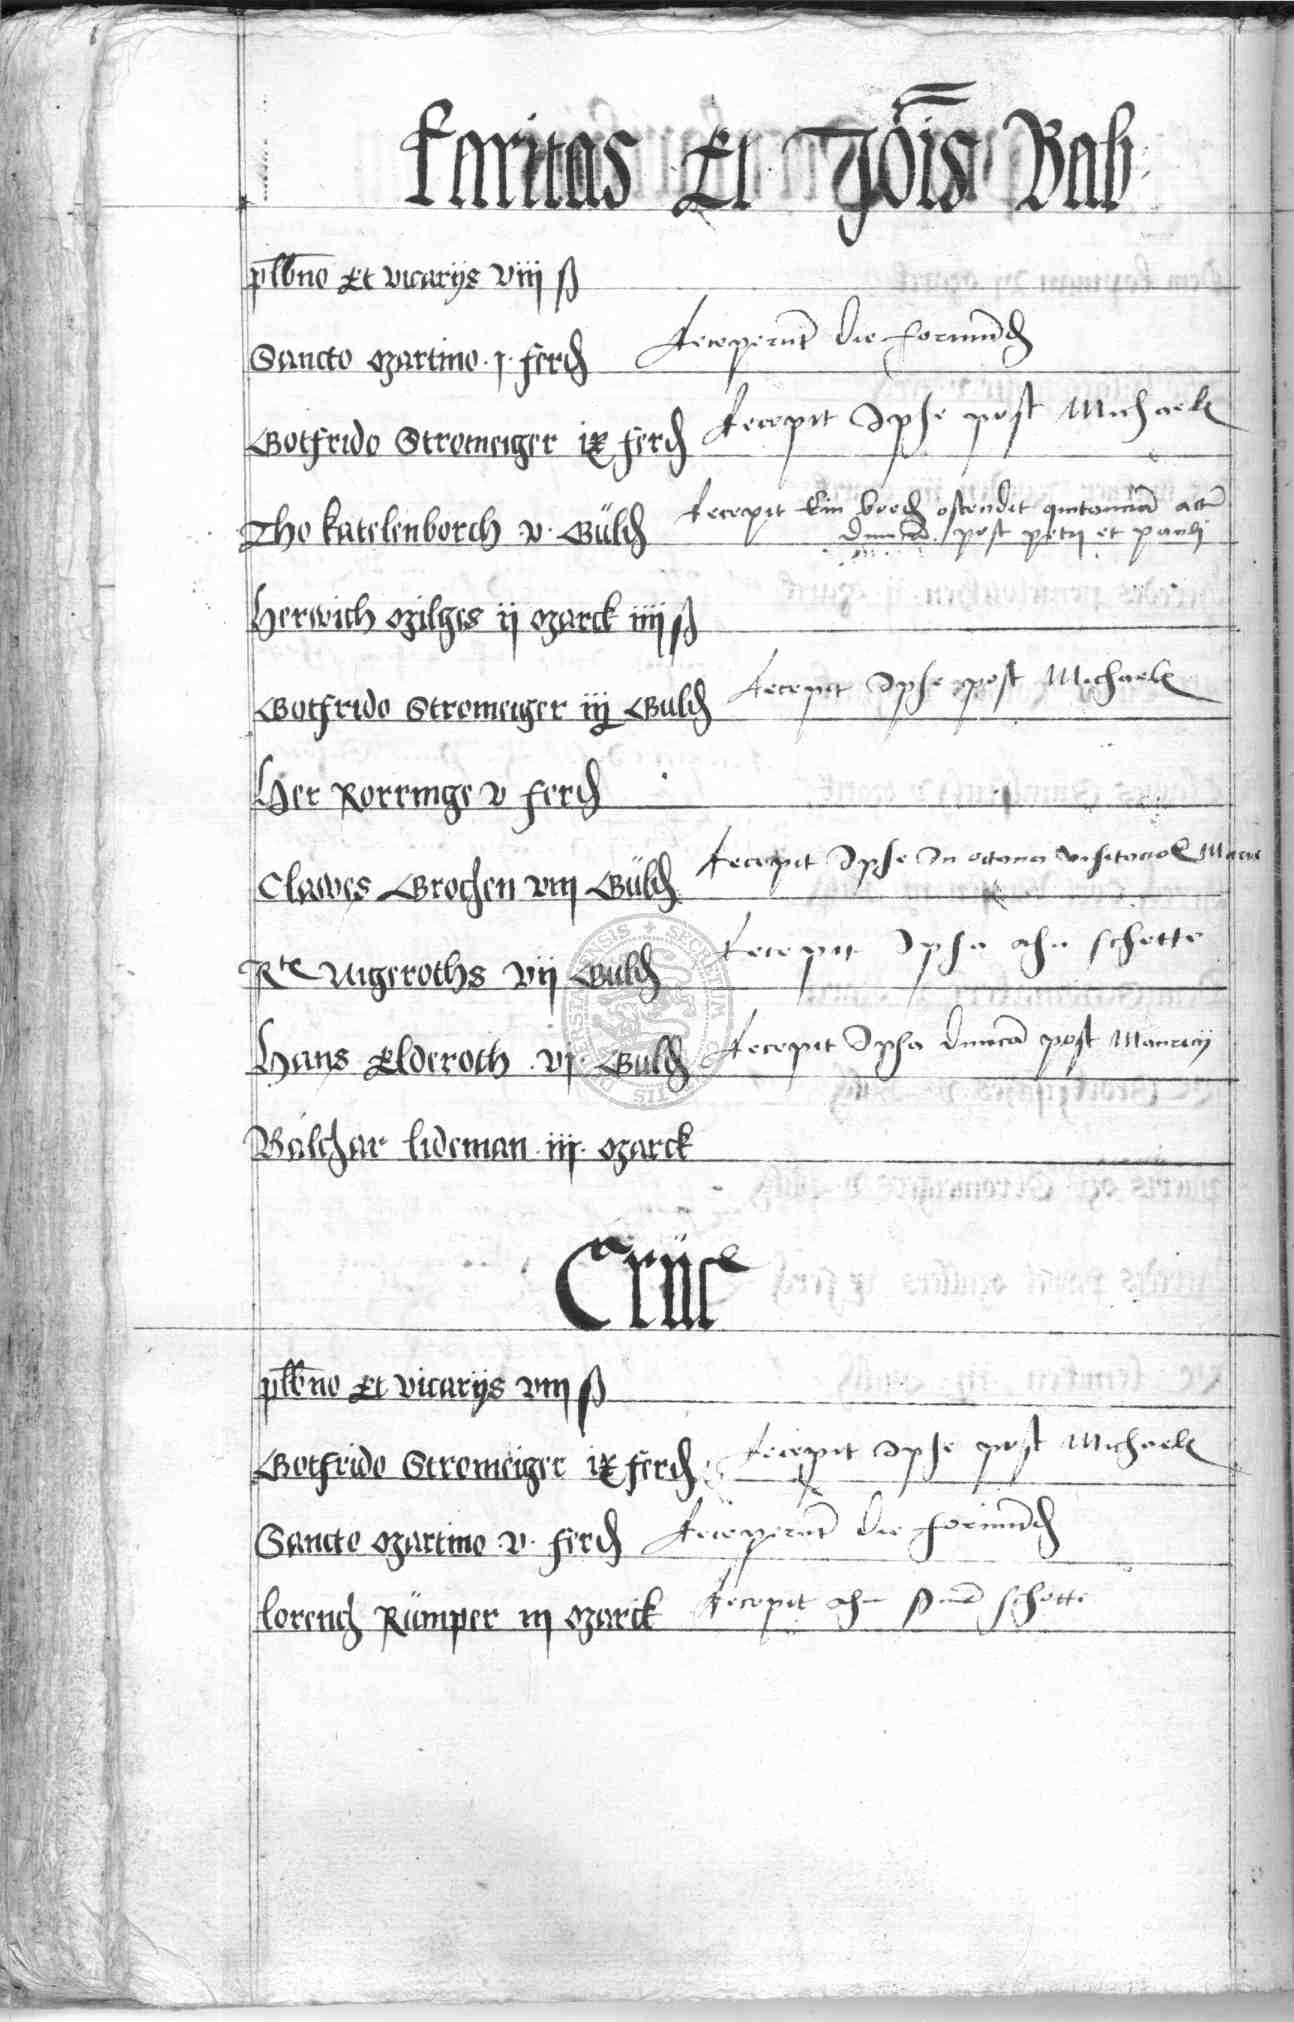 Karitas Et Jo͞is Bab
plb̅no Et vicarijs viij ß
Sancto Martino j ferd Recepert̅ die formu̅d
Gotfrido Stromeiger ix ferd Recepit Ipse post Michael
Tho katelenborch v Güld Recepit Ein breff ostendit quitancia̅
post petri et pauli
Herwich Milges ij Marck iiij ß
Gotfrido Stromeiger iij Guld Recepit Ipse post Michael
Her Rorringe v ferd
Clawes Grochen viij Güld Recepit Ipse In octava visitacio Marie
Rte Nigeroths vij Guld Recepit Ipse ahn schotte
Hans Elderoth vj Guld Recepit Ipse dm̅ica post Mauricij
Balthar lideman iij Marck
Crüc
plb̅no Et vicarijs viij ß
Gotfrido Stromeiger ix ferd Recepit Ipse post Michael
Sancto Martino v ferd Recepert̅ die formu̅d
lorencz Rümper iij Marck Recepit ahn schotte